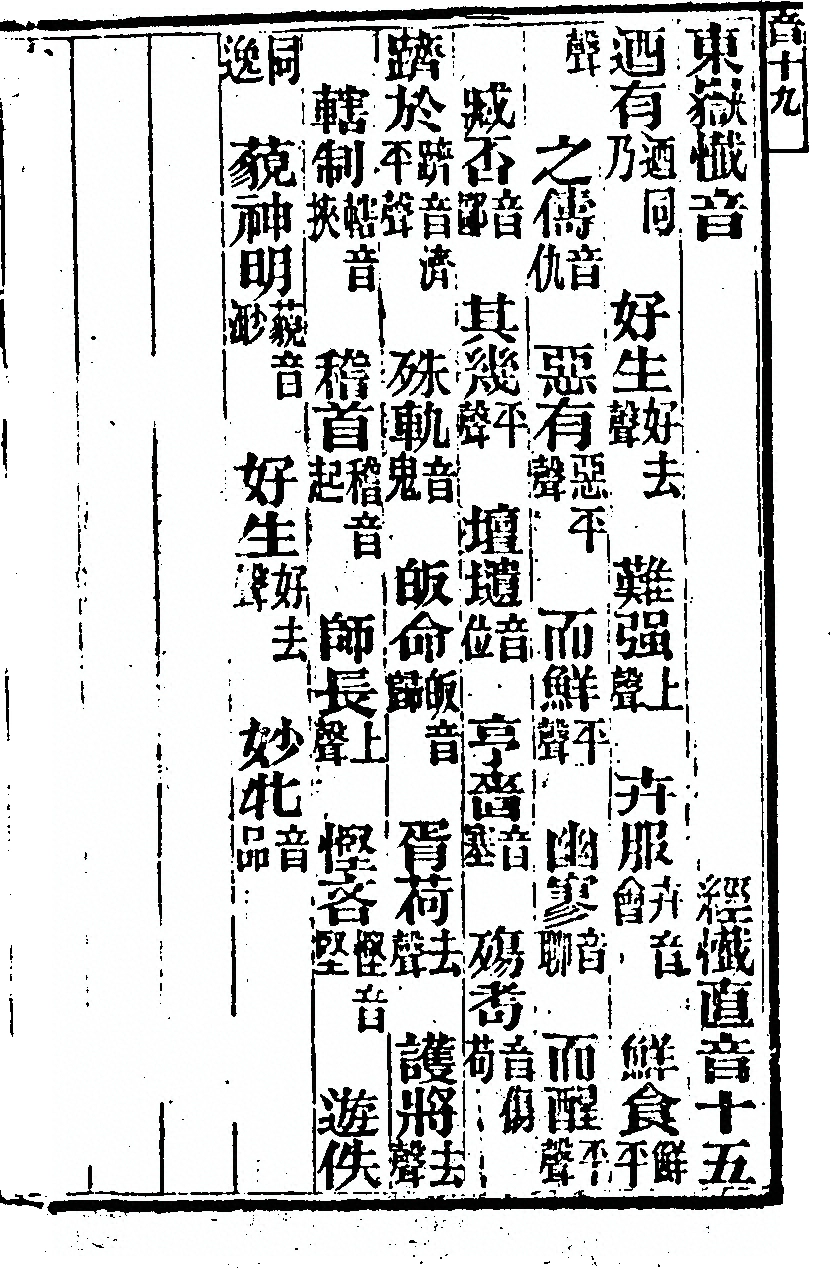 音十九
東嶽懺音　經懺直音十五
迺有迺同乃　好生好去聲　難强上聲　卉服卉音會　鮮食鮮平
聲　之儔音仇　惡有惡平聲　而鮮平聲　幽寥音聊　而醒平聲
臧否音鄙　其幾平聲　壇壝音位　亨嗇音塞　殤耇音傷苟
躋於躋音濟平聲　殊軌音鬼　皈命皈音歸　胥荷去聲　護將去聲
轄制轄音挾　稽首稽音起　師長上聲　慳吝慳音堅　遊佚
同逸　藐神明藐音渺　好生好去聲　妙牝音品